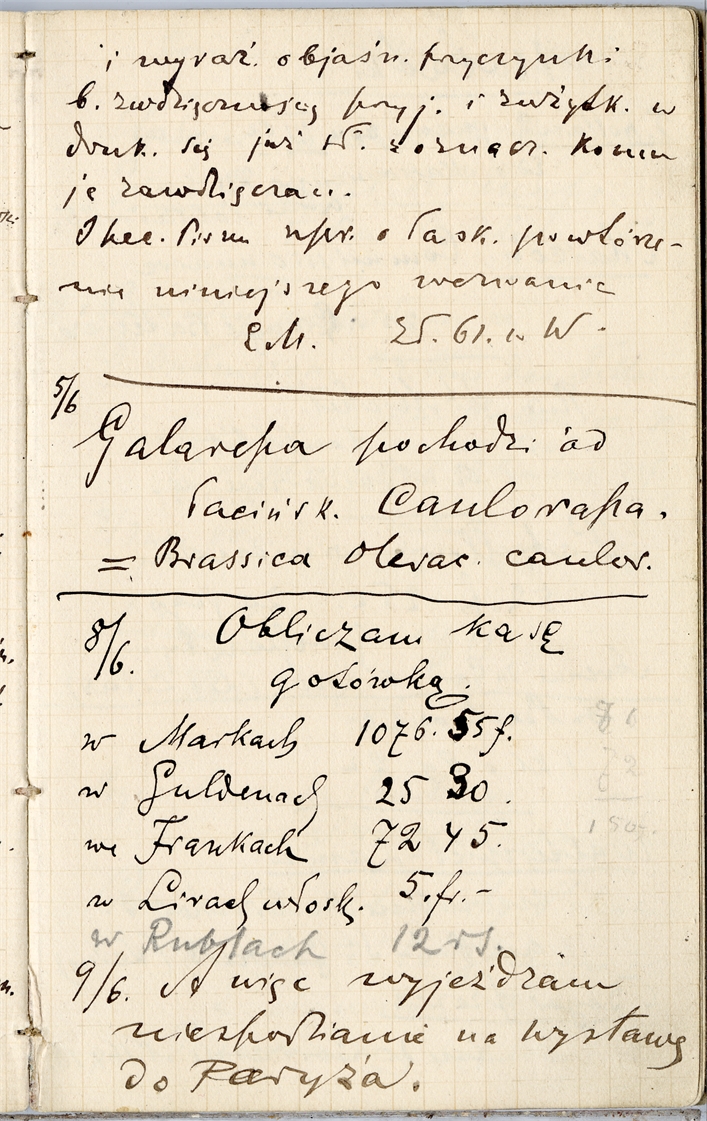 i wyraź. objaśn. przyczynki
b. zwdzięcznością przyj. i zużytk. w
druk. się już zł. zaznacz. komu
je zawdzięczam.
Szcc. Pism upr. o łask. powtórze-
nie niniejszego wezwania
E. M. Zł. 61. w W.
5/6
Galarepa pochodzi od
łacińsk. Caulorapa.
= Brassica Olerac. caulor.
8/6. Obliczam kasę
gotówką.
w Markach 1076. 55 f.
w Guldenach 25 30.
we Frankach 72 45.
w Lirach włosk. 5. fr. –
w Rublach 12 rs.
9/6. A więc wyjeżdżam
niespodzianie na wystawę
do Paryża.